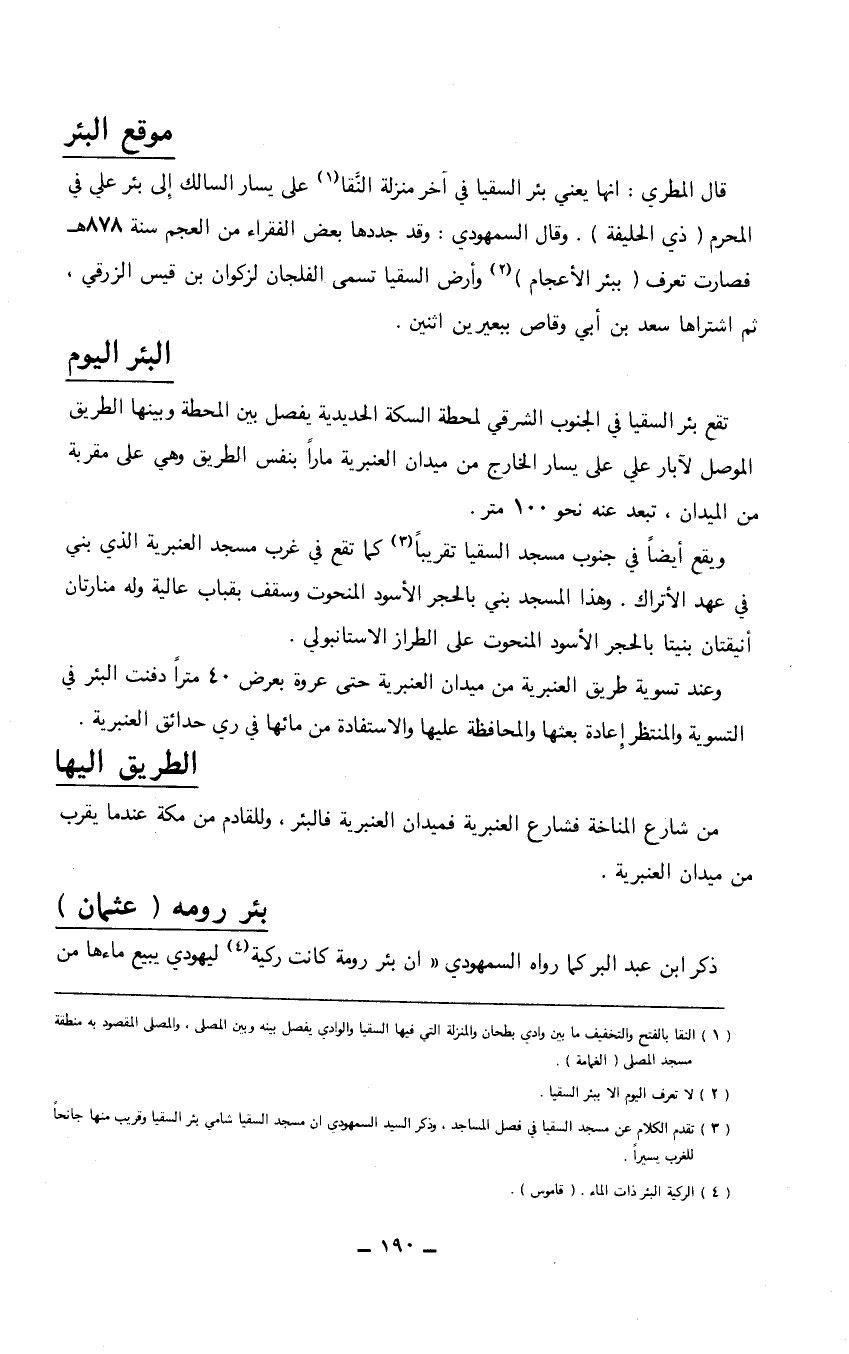 موقع البئر
قال المطري : انها يعني بئر السقيا في آخر منزلة النَّقا(١) على يسار السالك إلى بئر علي في
المحرم ( ذي الحليفة ) . وقال السمهودي : وقد جددها بعض الفقراء من العجم سنة ٨٧٨هـ
فصارت تعرف ( ببئر الأعجام )(٢) وأرض السقيا تسمى الفلجان لزكوان بن قيس الزرقي ،
ثم اشتراها سعد بن أبي وقاص ببعيرين اثنين .
البئر اليوم
تقع بئر السقيا في الجنوب الشرقي لمحطة السكة الحديدية يفصل بين المحطة وبينها الطريق
الموصل لآبار علي على يسار الخارج من ميدان العنبرية ماراً بنفس الطريق وهي على مقربة
من الميدان ، تبعد عنه نحو ١٠٠ متر .
ويقع أيضاً في جنوب مسجد السقيا تقريباً(٣) كما تقع في غرب مسجد العنبرية الذي بني
في عهد الأتراك . وهذا المسجد بني بالحجر الأسود المنحوت وسقف بقباب عالية وله منارتان
أنيقتان بنيتا بالحجر الأسود المنحوت على الطراز الاستانبولي .
وعند تسوية طريق العنبرية من ميدان العنبرية حتى عروة بعرض ٤٠ متراً دفنت البئر في
التسوية والمنتظر إعادة بعثها والمحافظة عليها والاستفادة من مائها في ري حدائق العنبرية .
الطريق اليها
من شارع المناخة فشارع العنبرية فميدان العنبرية فالبئر ، وللقادم من مكة عندما يقرب
من ميدان العنبرية .
بئر رومه ( عثمان )
ذكر ابن عبد البر كما رواه السمهودي « ان بئر رومة كانت ركية(٤) ليهودي يبيع ماءها من
( ١ ) النقا بالفتح والتخفيف ما بين وادي بطحان والمنزلة التي فيها السقيا والوادي يفصل بينه وبين المصلى ، والمصلى المقصود به منطقة
مسجد المصلى ( الغمامة ) .
( ٢ ) لا تعرف اليوم الا ببئر السقيا .
( ٣ ) تقدم الكلام عن مسجد السقيا في فصل المساجد ، وذكر السيد السمهودي ان مسجد السقيا شامي بئر السقيا وقريب منها جانحاً
للغرب يسيراً .
( ٤ ) الركية البئر ذات الماء . ( قاموس ) .
— ١٩٠ —